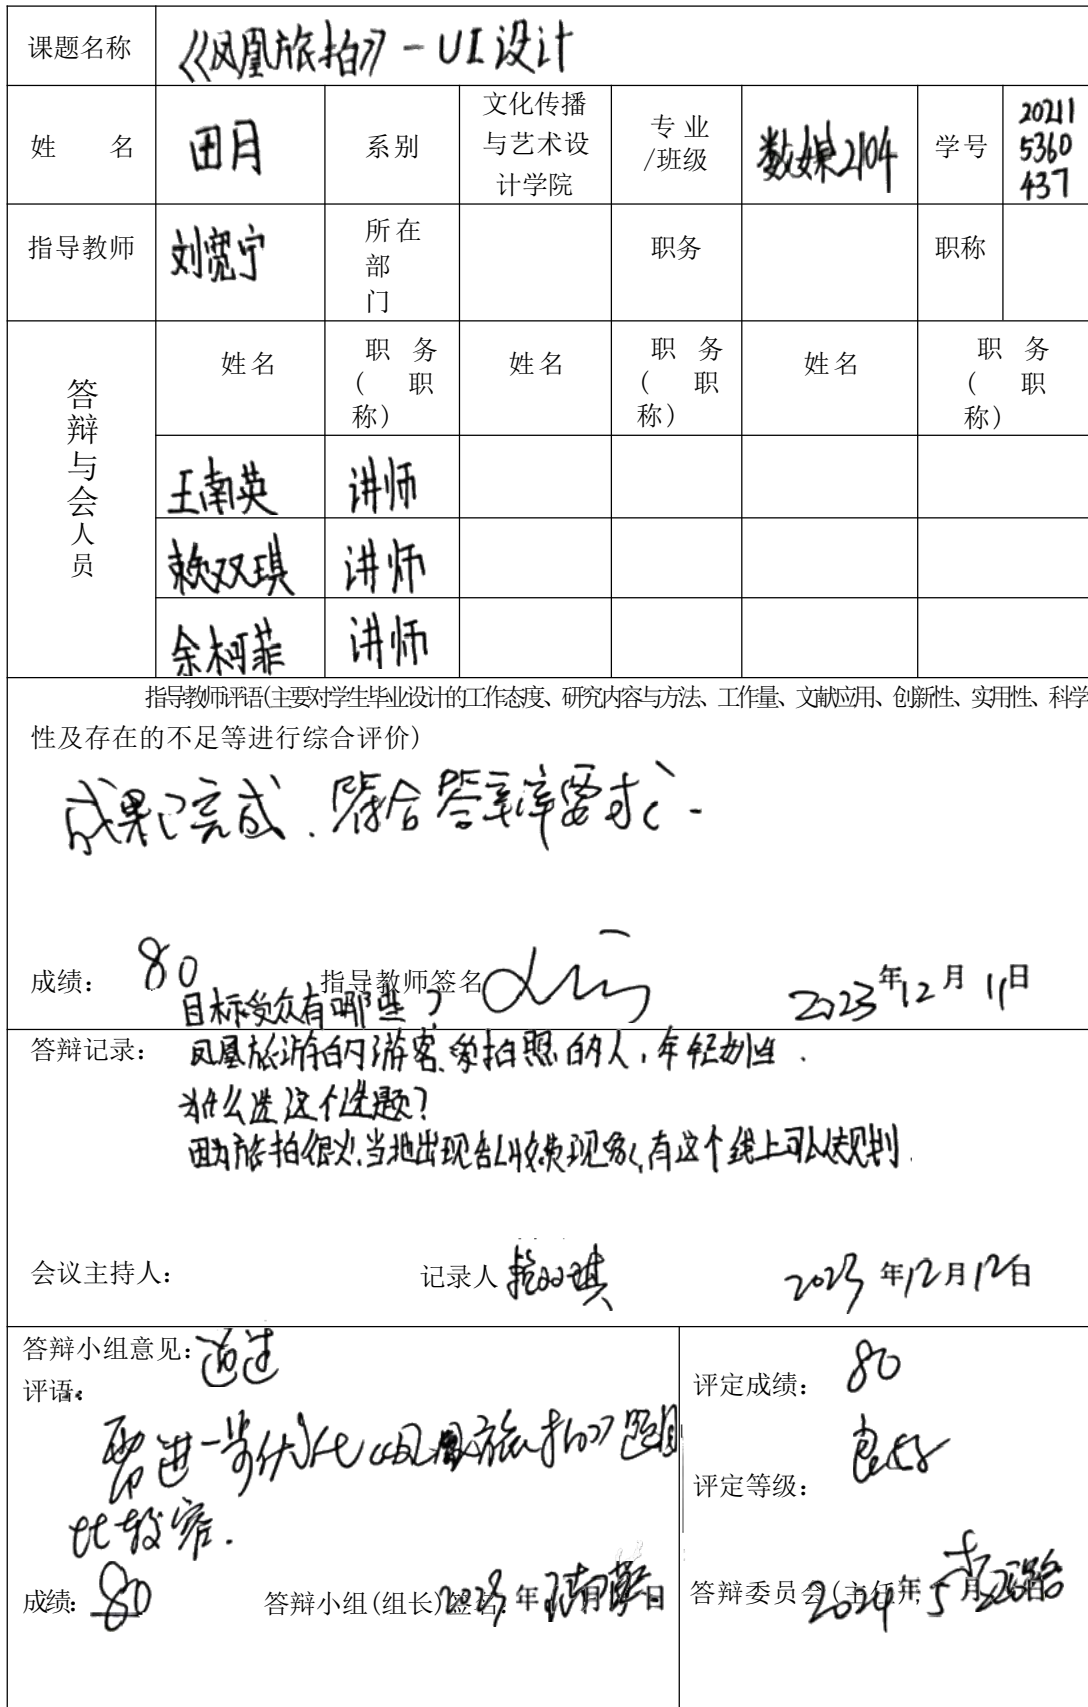 课题名称 《凤凰旅拍》-UI设计
姓 名 田月 系别 文化传播与艺术设计学院 专业/班级 数媒2104 学号 202115360437
指导教师 刘宽宁 所在部门 职务 职称
答辩与会人员 姓名 职务(职称) 姓名 职务(职称) 姓名 职务(职称)
王南英 讲师
赖双琪 讲师
余柯菲 讲师
指导教师评语(主要对学生毕业设计的工作态度、研究内容与方法、工作量、文献应用、创新性、实用性、科学
性及存在的不足等进行综合评价)
成果已完成.符合答辩要求.
成绩: 80 指导教师签名 2023年12月11日
目标受众有哪些?
答辩记录: 凤凰旅游的游客、爱拍照的人,年轻
为什么选这个选题?
因为旅拍很火,当地出现乱收费现象,有这个线上可以规划.
会议主持人: 记录人 赖双琪 2023年12月12日
答辩小组意见: 通过
评语:
需进一步优化《凤凰旅拍》题目
比较窄.
成绩: 80 答辩小组(组长)签名: 2023年 月 日
评定成绩: 80
评定等级: 良好
答辩委员会(主任) 2024年5月